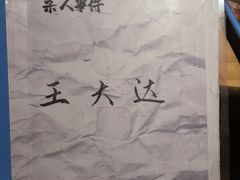 亲人事件
王大达